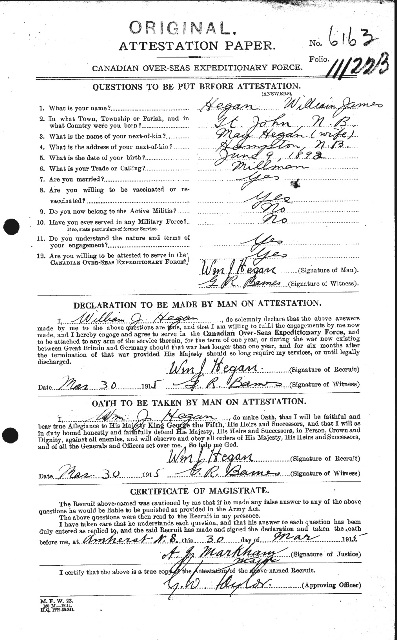 ORIGINAL.
ATTESTATION PAPER.
No. 6163
Folio.
CANADIAN OVER-SEAS EXPEDITIONARY FORCE.
QUESTIONS TO BE PUT BEFORE ATTESTATION.
(ANSWERS)
1. What is your name? Hegan William James
2. In what Town, Township or Parish, and in
what Country were you born? St. John N.B.
3. What is the name of your next-of-kin? May Hegan (wife)
4. What is the address of your next-of-kin? Hampton, N.B.
5. What is the date of your birth? June 9, 1893
6. What is your Trade or Calling? Millman
7. Are you married? Yes
8. Are you willing to be vaccinated or re-
vaccinated? Yes
9. Do you now belong to the Active Militia? No
10. Have you ever served in any Military Force? No
If so, state particulars of former Service.
11. Do you understand the nature and terms of
your engagement? Yes
12. Are you willing to be attested to serve in the
CANADIAN OVER-SEAS EXPEDITIONARY FORCE? Yes
Wm J Hegan (Signature of Man).
G. R. Barnes (Signature of Witness).
DECLARATION TO BE MADE BY MAN ON ATTESTATION.
I, William J. Hegan, do solemnly declare that the above answers
made by me to the above questions are true, and that I am willing to fulfil the engagements by me now
made, and I hereby engage and agree to serve in the Canadian Over-Seas Expeditionary Force, and
to be attached to any arm of the service therein, for the term of one year, or during the war now existing
between Great Britain and Germany should that war last longer than one year, and for six months after
the termination of that war provided His Majesty should so long require my services, or until legally
discharged.
Wm J Hegan (Signature of Recruit)
Date Mar 30 1915 G. R. Barnes (Signature of Witness)
OATH TO BE TAKEN BY MAN ON ATTESTATION.
I, Wm. J. Hegan, do make Oath, that I will be faithful and
bear true Allegiance to His Majesty King George the Fifth, His Heirs and Successors, and that I will as
in duty bound honestly and faithfully defend His Majesty, His Heirs and Successors, in Person, Crown and
Dignity, against all enemies, and will observe and obey all orders of His Majesty, His Heirs and Successors,
and of all the Generals and Officers set over me. So help me God.
Wm J Hegan (Signature of Recruit)
Date Mar 30 1915 G. R. Barnes (Signature of Witness)
CERTIFICATE OF MAGISTRATE.
The Recruit above-named was cautioned by me that if he made any false answer to any of the above
questions he would be liable to be punished as provided in the Army Act.
The above questions were then read to the Recruit in my presence.
I have taken care that he understands each question, and that his answer to each question has been
duly entered as replied to, and the said Recruit has made and signed the declaration and taken the oath
before me, at Amherst N.S. this 30 day of Mar 1915
Markham (Signature of Justice)
Major
I certify that the above is a true copy of the Attestation of the above named Recruit.
(Approving Officer)
M. F. W. 23.